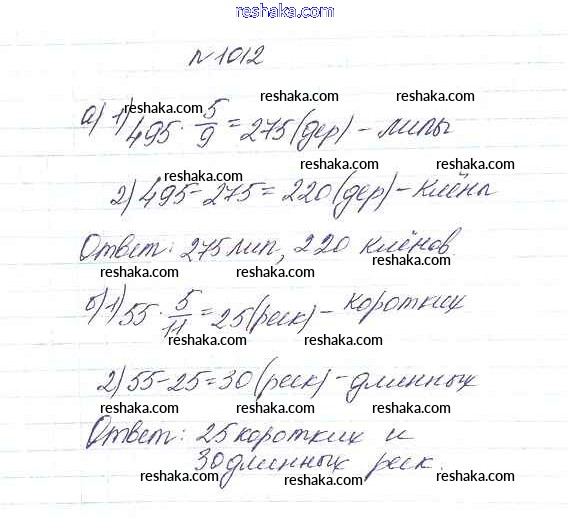 reshaka.com
№1012
reshaka.com
reshaka.com
а) 1) 495 · 5/9 = 275 (дер) - липы
reshaka.com
reshaka.com
reshaka.com
2) 495 - 275 = 220 (дер) - клёны
reshaka.com
Ответ: 275 лип, 220 клёнов.
reshaka.com
reshaka.com
reshaka.com
reshaka.com
б) 1) 55 · 5/11 = 25 (реск) - коротких
reshaka.com
reshaka.com
reshaka.com
2) 55 - 25 = 30 (реск) - длинных
reshaka.com
reshaka.com
reshaka.com
Ответ: 25 коротких и
30 длинных реск.
reshaka.com
reshaka.com
reshaka.com